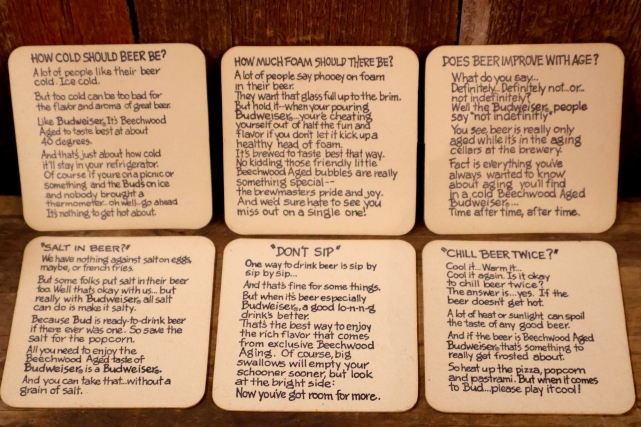 HOW COLD SHOULD BEER BE?
A lot of people like their beer
cold. Ice cold.
But too cold can be too bad for
the flavor and aroma of great beer.
Like Budweiser®. It's Beechwood
Aged to taste best at about
40 degrees.
And that's just about how cold
it'll stay in your refrigerator.
Of course if you're on a picnic or
something, and the Bud's on ice
and nobody brought a
thermometer...oh well...go ahead
It's nothing to get hot about.
HOW MUCH FOAM SHOULD THERE BE?
A lot of people say phooey on foam
in their beer.
They want that glass full up to the brim.
But hold it--when your pouring
Budweiser®, you're cheating
yourself out of half the fun and
flavor if you don't let it kick up a
healthy head of foam.
It's brewed to taste best that way.
No kidding those friendly little
Beechwood Aged bubbles are really
something special--
the brewmasters pride and joy.
And we'd sure hate to see you
miss out on a single one!
DOES BEER IMPROVE WITH AGE?
What do you say...
Definitely...Definitely not...or...
not indefinitely?
Well the Budweiser® people
say "not indefinitly"
You see beer is really only
aged while it's in the aging
cellars at the brewery.
Fact is everything you've
always wanted to know
about aging you'll find
in a cold Beechwood Aged
Budweiser®...
Time after time, after time.
"SALT IN BEER?"
We have nothing against salt on eggs,
maybe, or french fries.
But some folks put salt in their beer
too. Well that's okay with us...but
really with Budweiser®, all salt
can do is make it salty.
Because Bud is ready-to-drink beer
if there ever was one. So save the
salt for the popcorn.
All you need to enjoy the
Beechwood Aged taste of
Budweiser® is a Budweiser®.
And you can take that...without a
grain of salt.
"DON'T SIP"
One way to drink beer is sip by
sip by sip...
And that's fine for some things.
But when it's beer especially
Budweiser®, a good lo-n-n-g
drink's better.
That's the best way to enjoy
the rich flavor that comes
from exclusive Beechwood
Aging. Of course, big
swallows will empty your
schooner sooner, but look
at the bright side:
Now you've got room for more.
"CHILL BEER TWICE?"
Cool it...Warm it...
Cool it again. Is it okay
to chill beer twice?
The answer is...yes. If the
beer doesn't get hot.
A lot of heat or sunlight can spoil
the taste of any good beer.
And if the beer is Beechwood Aged
Budweiser®, that's something to
really get frosted about.
So heat up the pizza, popcorn
and pastrami. But when it comes
to Bud...please play it cool!